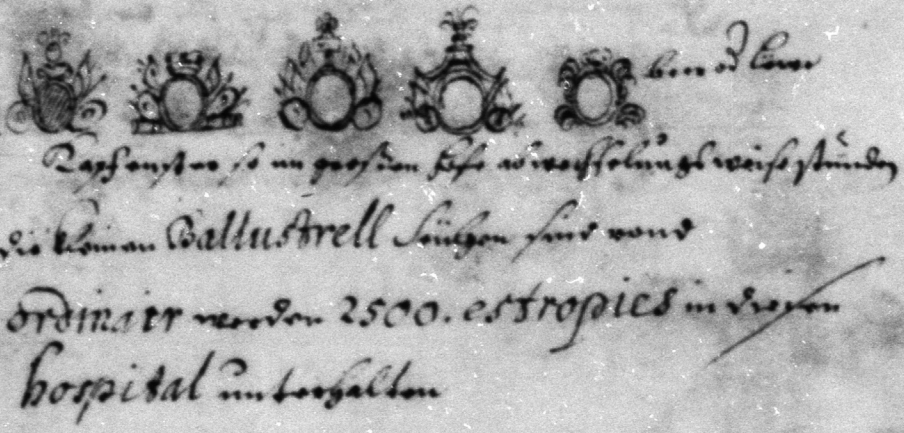 Kapfenster so im großen hofe abwechselungs weise stunden
die kleinen Ballustrell seulgen sind rond
ordinair werden 2500. estropies in diesen
hospital unterhalten